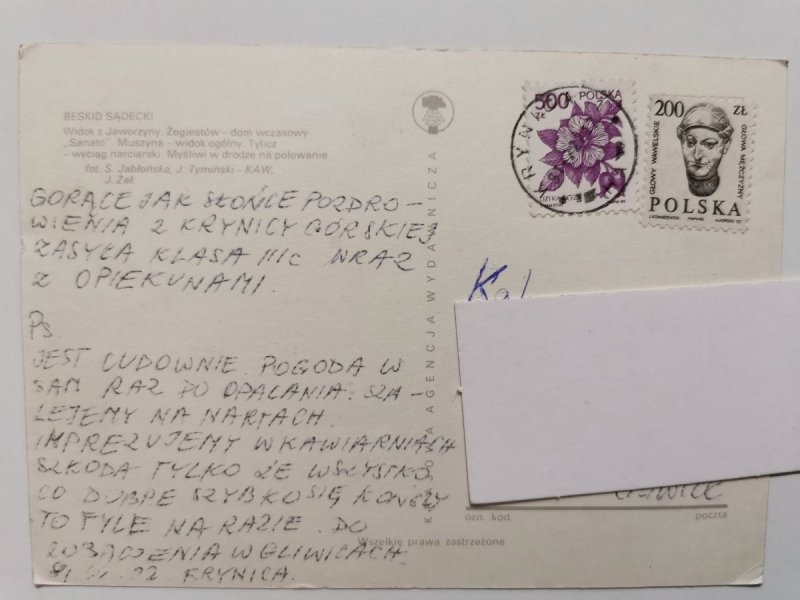 BESKID SĄDECKI
Widok z Jaworzyny. Żegiestów - dom wczasowy
„Sanato” Muszyna - widok ogólny. Tylicz
- wyciąg narciarski. Myśliwi w drodze na polowanie
fot. S. Jabłońska, J. Tymiński - KAW,
J. Żak
GORĄCE JAK SŁOŃCE POZDRO-
WIENIA Z KRYNICY GÓRSKIEJ
ZASYŁA KLASA IIIc WRAZ
Z OPIEKUNAMI.
Ps.
JEST CUDOWNIE. POGODA W
SAM RAZ DO OPALANIA. SZA-
LEJEMY NA NARTACH.
IMPREZUJEMY W KAWIARNIACH
SZKODA TYLKO ŻE WSZYSTKO
CO DOBRE SZYBKO SIĘ KOŃCZY
TO TYLE NA RAZIE. DO
ZOBACZENIA W GLIWICACH.
KRYNICA.
A AGENCJA WYDAWNICZA
500 ZŁ
POLSKA
KRYNICA
200 ZŁ
GŁOWY WAWELSKIE
GŁOWA MĘŻCZYZNY
POLSKA
Kal
ozn. kod.
poczta
Wszelkie prawa zastrzeżone